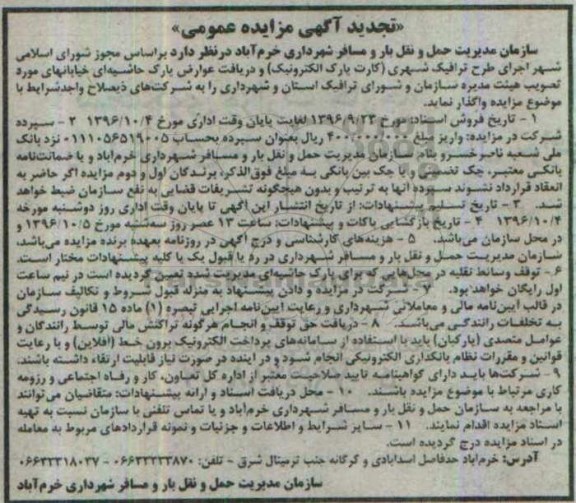 «تجدید آگهی مزایده عمومی»
سازمان مدیریت حمل و نقل بار و مسافر شهرداری خرم‌آباد درنظر دارد براساس مجوز شورای اسلامی
شهر اجرای طرح ترافیک شهری (کارت پارک الکترونیک) و دریافت عوارض پارک حاشیه‌ای خیابانهای مورد
تصویب هیئت مدیره سازمان و شورای ترافیک استان و شهرداری را به شرکت‌های ذیصلاح واجدشرایط با
موضوع مزایده واگذار نماید.
۱ - تاریخ فروش اسناد: مورخ ۱۳۹۶/۹/۲۳ لغایت پایان وقت اداری مورخ ۱۳۹۶/۱۰/۴ ۲ - سپرده
شرکت در مزایده: واریز مبلغ ۴۰۰/۰۰۰/۰۰۰ ریال بعنوان سپرده بحساب ۰۱۱۱۰۵۶۵۱۹۰۰۵ نزد بانک
ملی شعبه ناصرخسرو بنام سازمان مدیریت حمل و نقل بار و مسافر شهرداری خرم‌آباد و یا ضمانت‌نامه
بانکی معتبر، چک تضمینی و یا چک بین بانکی به مبلغ فوق‌الذکر، برندگان اول و دوم مزایده اگر حاضر به
انعقاد قرارداد نشوند سپرده آنها به ترتیب و بدون هیچگونه تشریفات قضایی به نفع سازمان ضبط خواهد
شد. ۳ - تاریخ تسلیم پیشنهادات: از تاریخ انتشار این آگهی تا پایان وقت اداری روز دوشنبه مورخه
۱۳۹۶/۱۰/۴ ۴ - تاریخ بازگشایی پاکات و پیشنهادات: ساعت ۱۳ عصر روز سه‌شنبه مورخ ۱۳۹۶/۱۰/۵ و
در محل سازمان می‌باشد. ۵ - هزینه‌های کارشناسی و درج آگهی در روزنامه بعهده برنده مزایده می‌باشد،
سازمان مدیریت حمل و نقل بار و مسافر شهرداری در رد یا قبول یک یا کلیه پیشنهادات مختار است.
۶ - توقف وسائط نقلیه در محل‌هایی که برای پارک حاشیه‌ای مدیریت شده تعیین گردیده است در نیم ساعت
اول رایگان خواهد بود. ۷ - شرکت در مزایده و دادن پیشنهاد به منزله قبول شروط و تکالیف سازمان
در قالب آیین‌نامه مالی و معاملاتی شهرداری و رعایت آیین‌نامه اجرایی تبصره (۱) ماده ۱۵ قانون رسیدگی
به تخلفات رانندگی می‌باشد. ۸ - دریافت حق توقف و انجام هرگونه تراکنش مالی توسط رانندگان و
عوامل متصدی (پارکبان) باید با استفاده از سامانه‌های پرداخت الکترونیک برون خط (آفلاین) و با رعایت
قوانین و مقررات نظام بانکداری الکترونیکی انجام شود و در آینده در صورت نیاز قابلیت ارتقاء داشته باشند.
۹ - شرکت‌ها باید دارای گواهینامه تایید صلاحیت معتبر از اداره کل تعاون، کار و رفاه اجتماعی و رزومه
کاری مرتبط با موضوع مزایده باشند. ۱۰ - محل دریافت اسناد و ارائه پیشنهادات: متقاضیان می‌توانند
با مراجعه به سازمان حمل و نقل بار و مسافر شهرداری خرم‌آباد و یا تماس تلفنی با سازمان نسبت به تهیه
اسناد مزایده اقدام نمایند. ۱۱ - سایر شرایط و اطلاعات و جزئیات و نمونه قراردادهای مربوط به معامله
در اسناد مزایده درج گردیده است.
آدرس: خرم‌آباد حدفاصل اسدآبادی و گرگانه جنب ترمینال شرق - تلفن: ۰۶۶۳۳۲۳۳۸۷۰ - ۰۶۶۳۳۳۱۸۰۳۷
سازمان مدیریت حمل و نقل بار و مسافر شهرداری خرم‌آباد